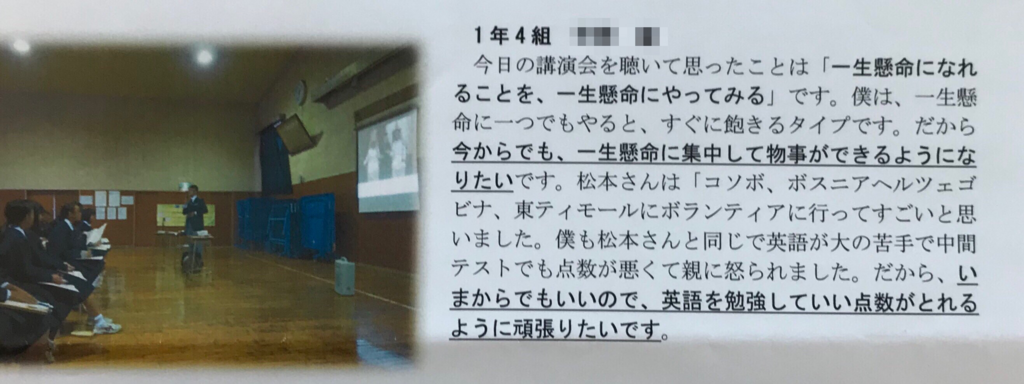 1年4組
今日の講演会を聴いて思ったことは「一生懸命になれ
ることを、一生懸命にやってみる」です。僕は、一生懸
命に一つでもやると、すぐに飽きるタイプです。だから
今からでも、一生懸命に集中して物事ができるようにな
りたいです。松本さんは「コソボ、ボスニアヘルツェゴ
ビナ、東ティモールにボランティアに行ってすごいと思
いました。僕も松本さんと同じで英語が大の苦手で中間
テストでも点数が悪くて親に怒られました。だから、い
まからでもいいので、英語を勉強していい点数がとれる
ように頑張りたいです。